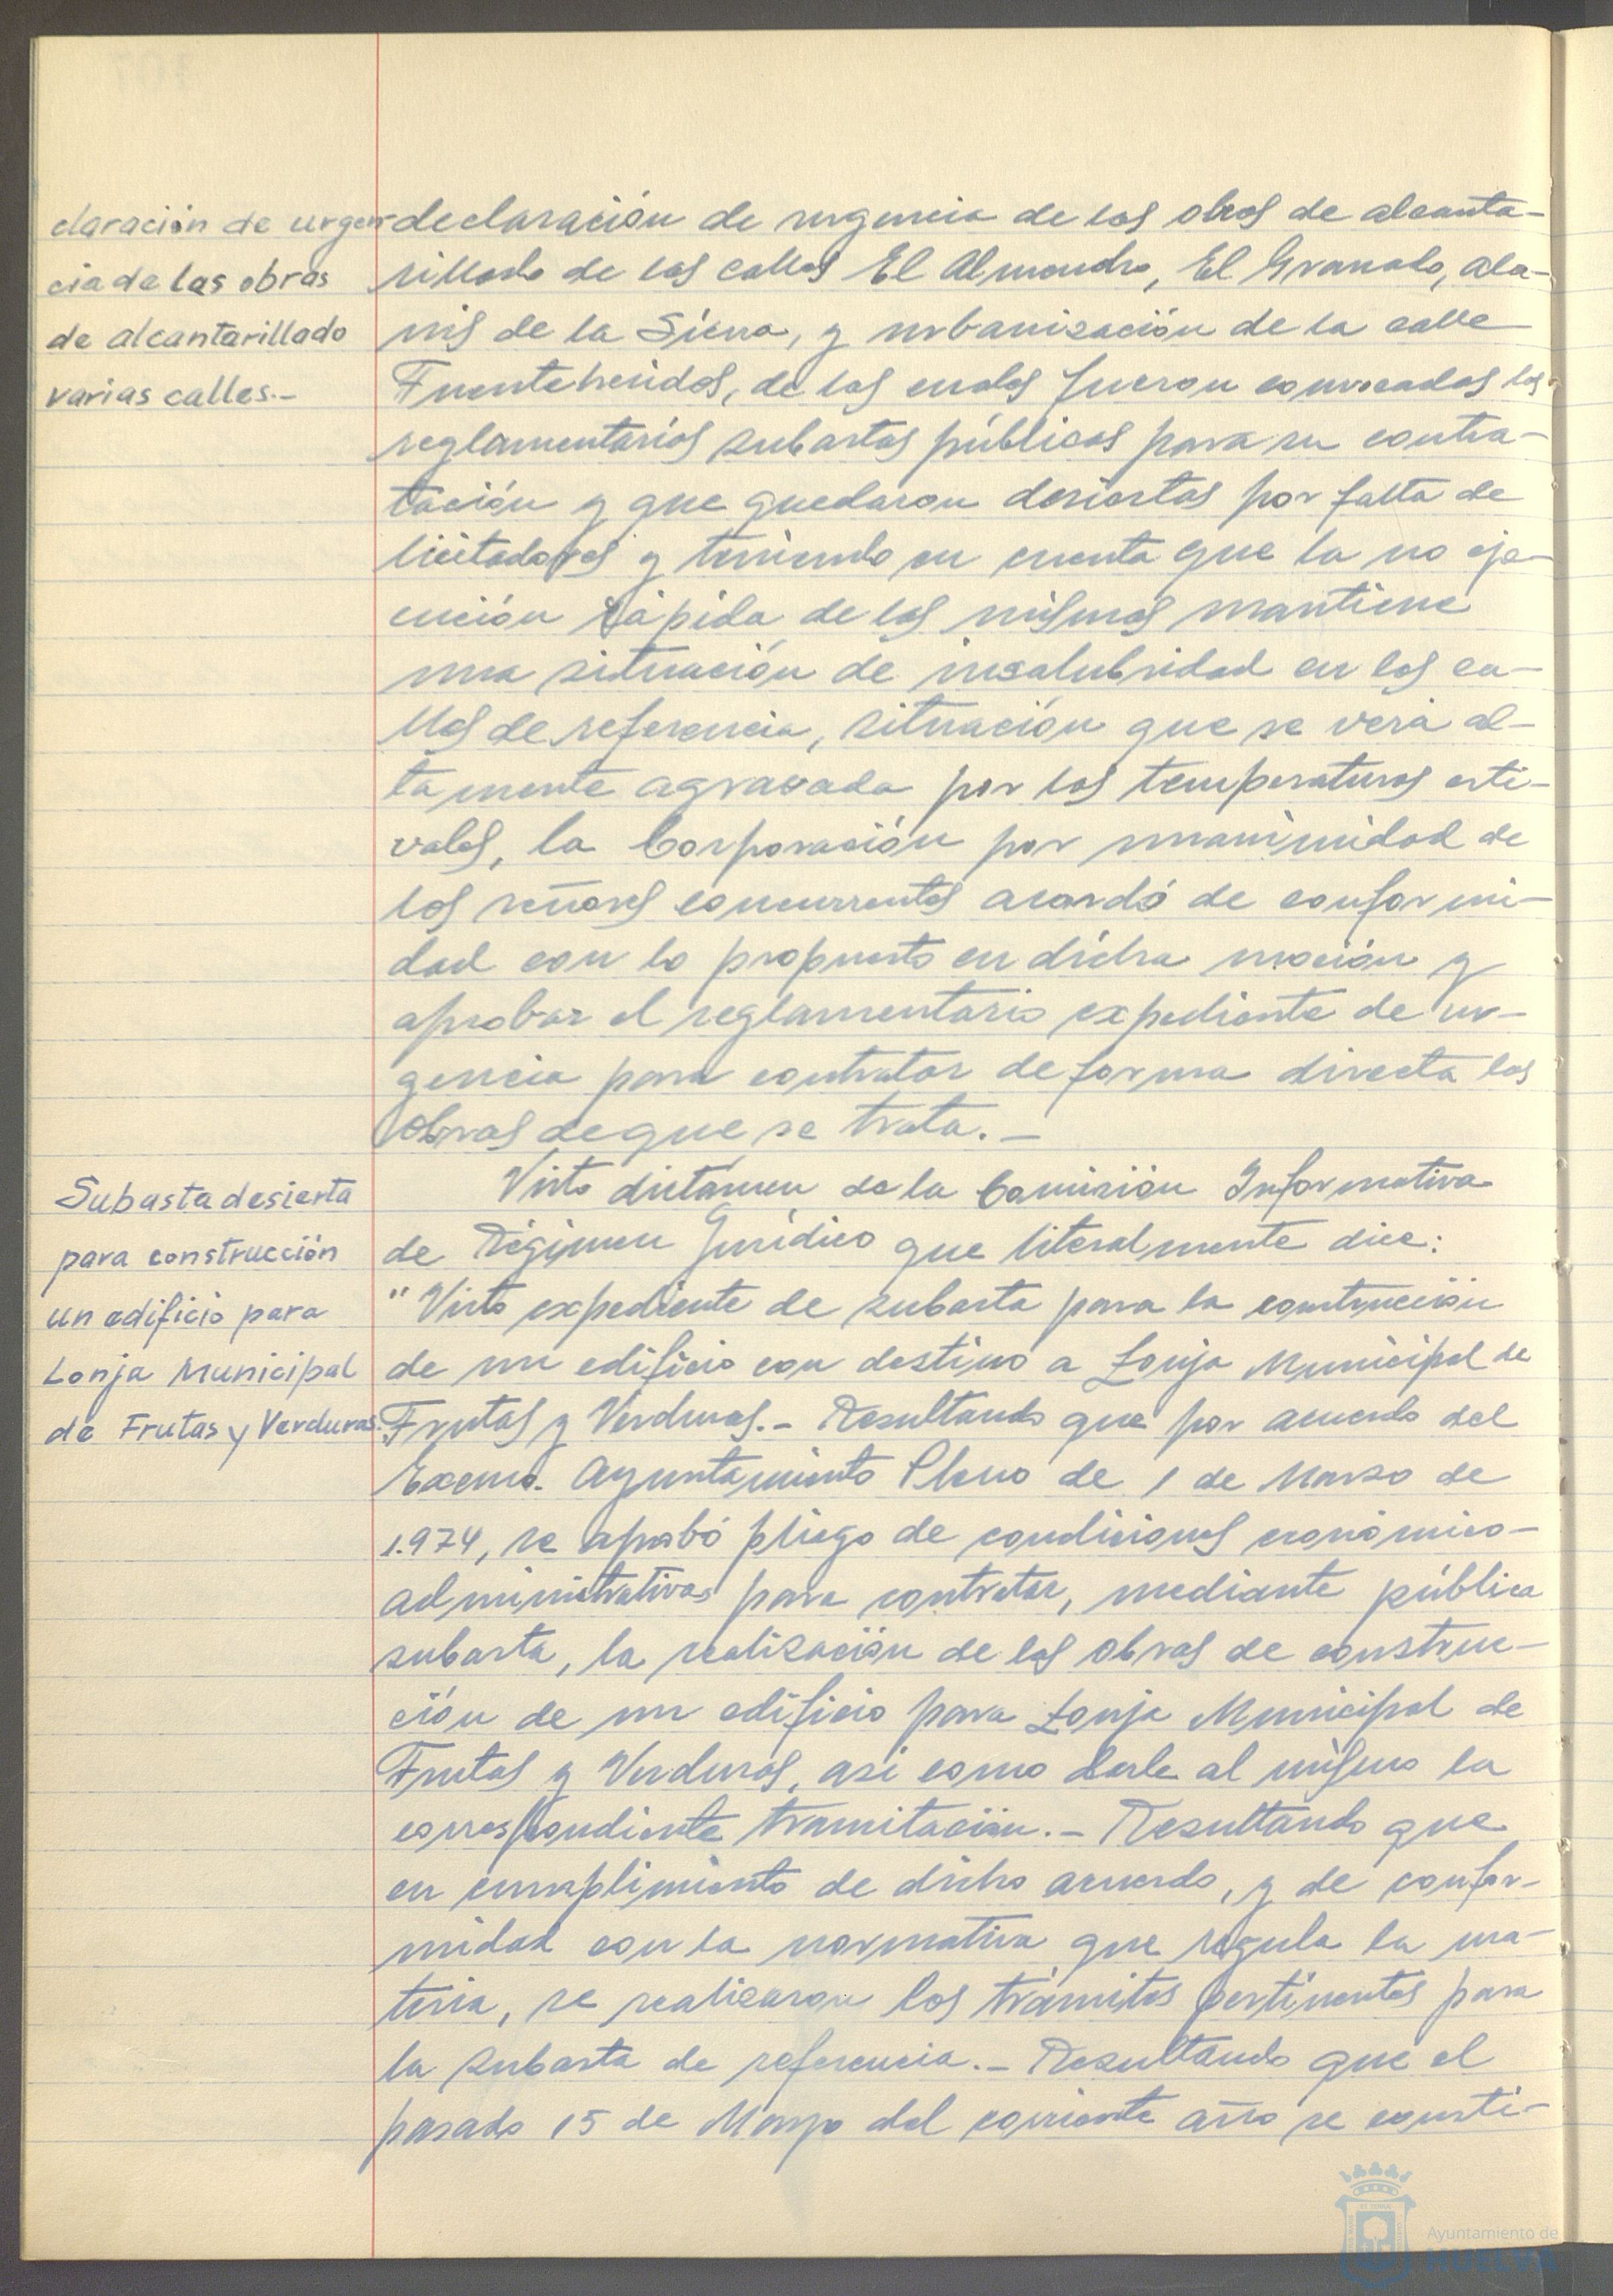 claración de urgen-
cia de las obras
de alcantarillado
varias calles.-
declaración de urgencia de las obras de alcanta-
rillado de las calles El Almendro, El Granado, Ala-
nis de la Sierra, y urbanización de la calle
Fuenteheridos, de las cuales fueron convocadas las
reglamentarias subastas públicas para su contra-
tación y que quedaron desiertas por falta de
licitadores y teniendo en cuenta que la no eje-
cución rápida de las mismas mantiene
una situación de insalubridad en las ca-
lles de referencia, situación que se verá al-
tamente agravada por las temperaturas esti-
vales, la Corporación por unanimidad de
los señores concurrentes acordó de conformi-
dad con lo propuesto en dicha moción y
aprobar el reglamentario expediente de ur-
gencia para contratar de forma directa las
obras de que se trata.-
Subasta desierta
para construcción
un edificio para
Lonja Municipal
de Frutas y Verduras.
Visto dictámen de la Comisión Informativa
de Régimen Jurídico que literalmente dice:
"Visto expediente de subasta para la construcción
de un edificio con destino a Lonja Municipal de
Frutas y Verduras.- Resultando que por acuerdo del
Excmo. Ayuntamiento Pleno de 1 de Marzo de
1.974, se aprobó pliego de condiciones económico-
administrativas para contratar, mediante pública
subasta, la realización de las obras de construc-
ción de un edificio para Lonja Municipal de
Frutas y Verduras, asi como darle al mismo la
correspondiente tramitación.- Resultando que
en cumplimiento de dicho acuerdo, y de confor-
midad con la normativa que regula la ma-
teria, se realizaron los trámites pertinentes para
la subasta de referencia.- Resultando que el
pasado 15 de Mayo del corriente año se consti-
Ayuntamiento de
HUELVA